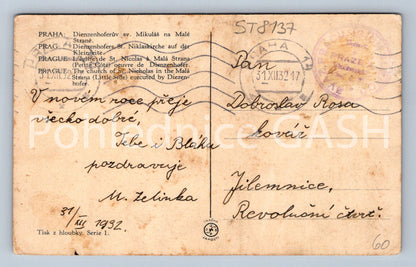 ST8137
PRAHA: Dienzenhoferův sv. Mikuláš na Malé
Straně.
PRAG: Dienzenhofers St. Niklaskirche auf der
Kleinseite.
PRAGUE: L'église de St. Nicolas à Malá Strana
(Petite Côté) œuvre de Dienzenhofer.
PRAGUE: The church of St. Nicholas in the Malá
Strana (Little Side) executed by Dienzen-
hofer.
PRAHA
31.XII.32.17
V novém roce přeje
všecko dobré,
Tebe i Blážu
pozdravuje
M. Zelinka
31/XII 1932.
Pan
Dobroslav Rosa
kovář
Jilemnice,
Revoluční čtvrť.
Tisk z hloubky. Serie I.
60
Pohlednice GASH